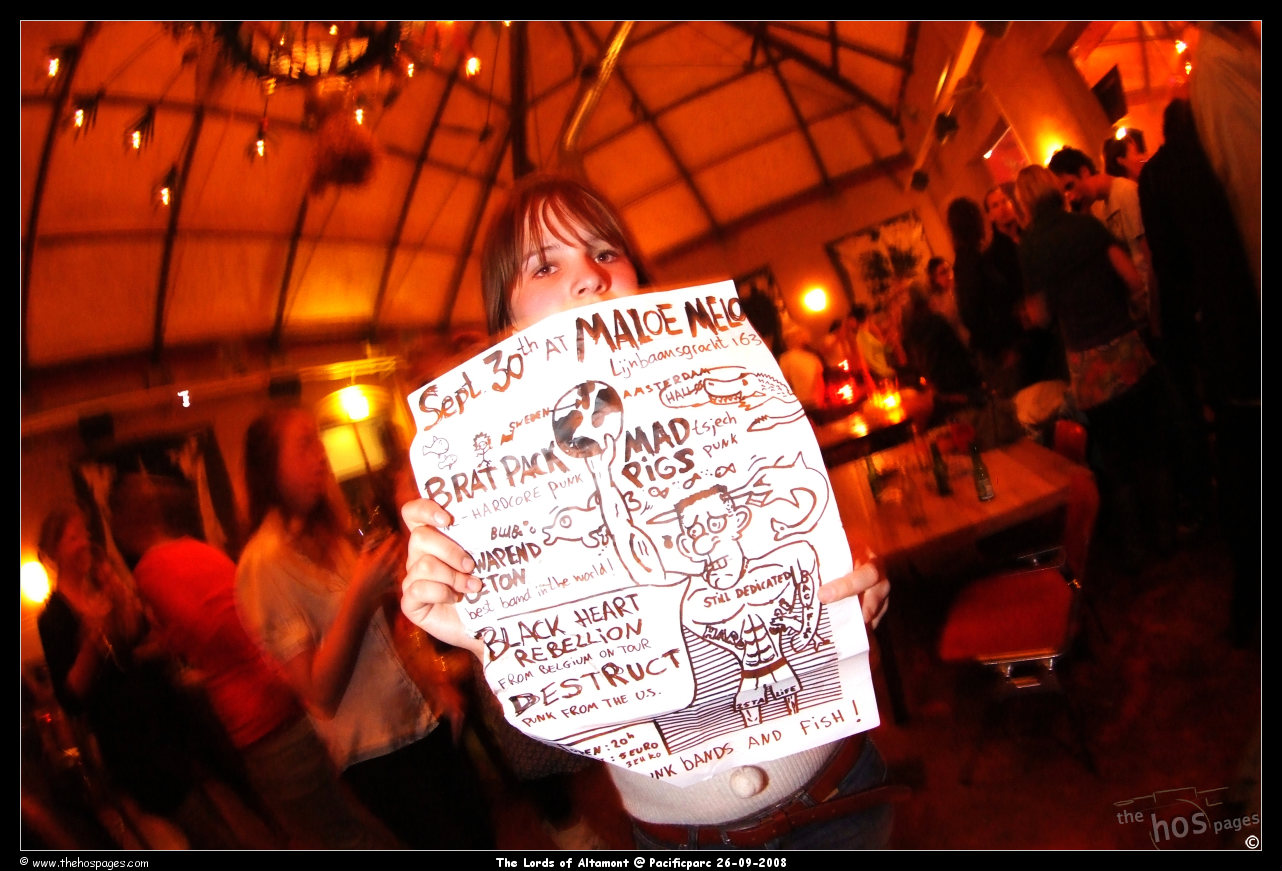 Sept. 30th AT MALOE MELO
Lijnbaansgracht 163
AMSTERDAM
HALLO
SWEDEN
BRAT PACK
HARDCORE PUNK
MAD PIGS
tsjech
PUNK
BLUB
WAPEND
BETON
best band in the world!
BLACK HEART
REBELLION
FROM BELGIUM ON TOUR
DESTRUCT
PUNK FROM THE U.S.
STILL DEDICATED
LIFE
EN: 20h
: 5 EURO
BANDS AND FISH!
the hos pages
©
© www.thehospages.com
The Lords of Altamont @ Pacificparc 26-09-2008